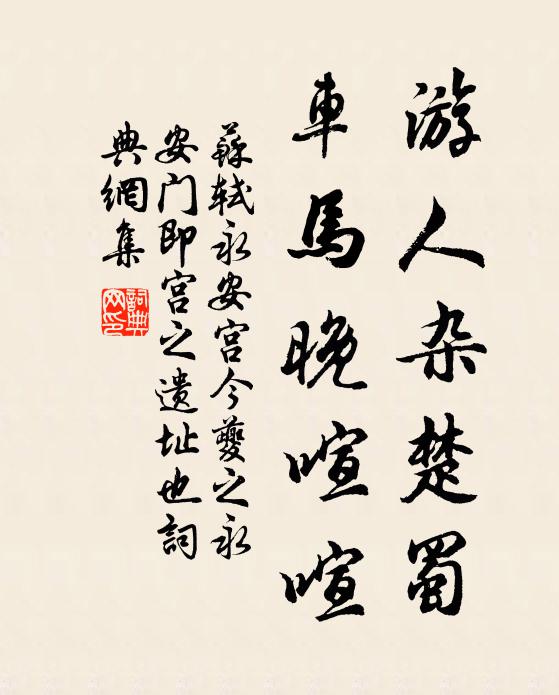 游人杂楚蜀
車馬晚喧喧
蘇軾永安宮今夔之永
安门即宫之遗址也詞
典網集
詞典
网印